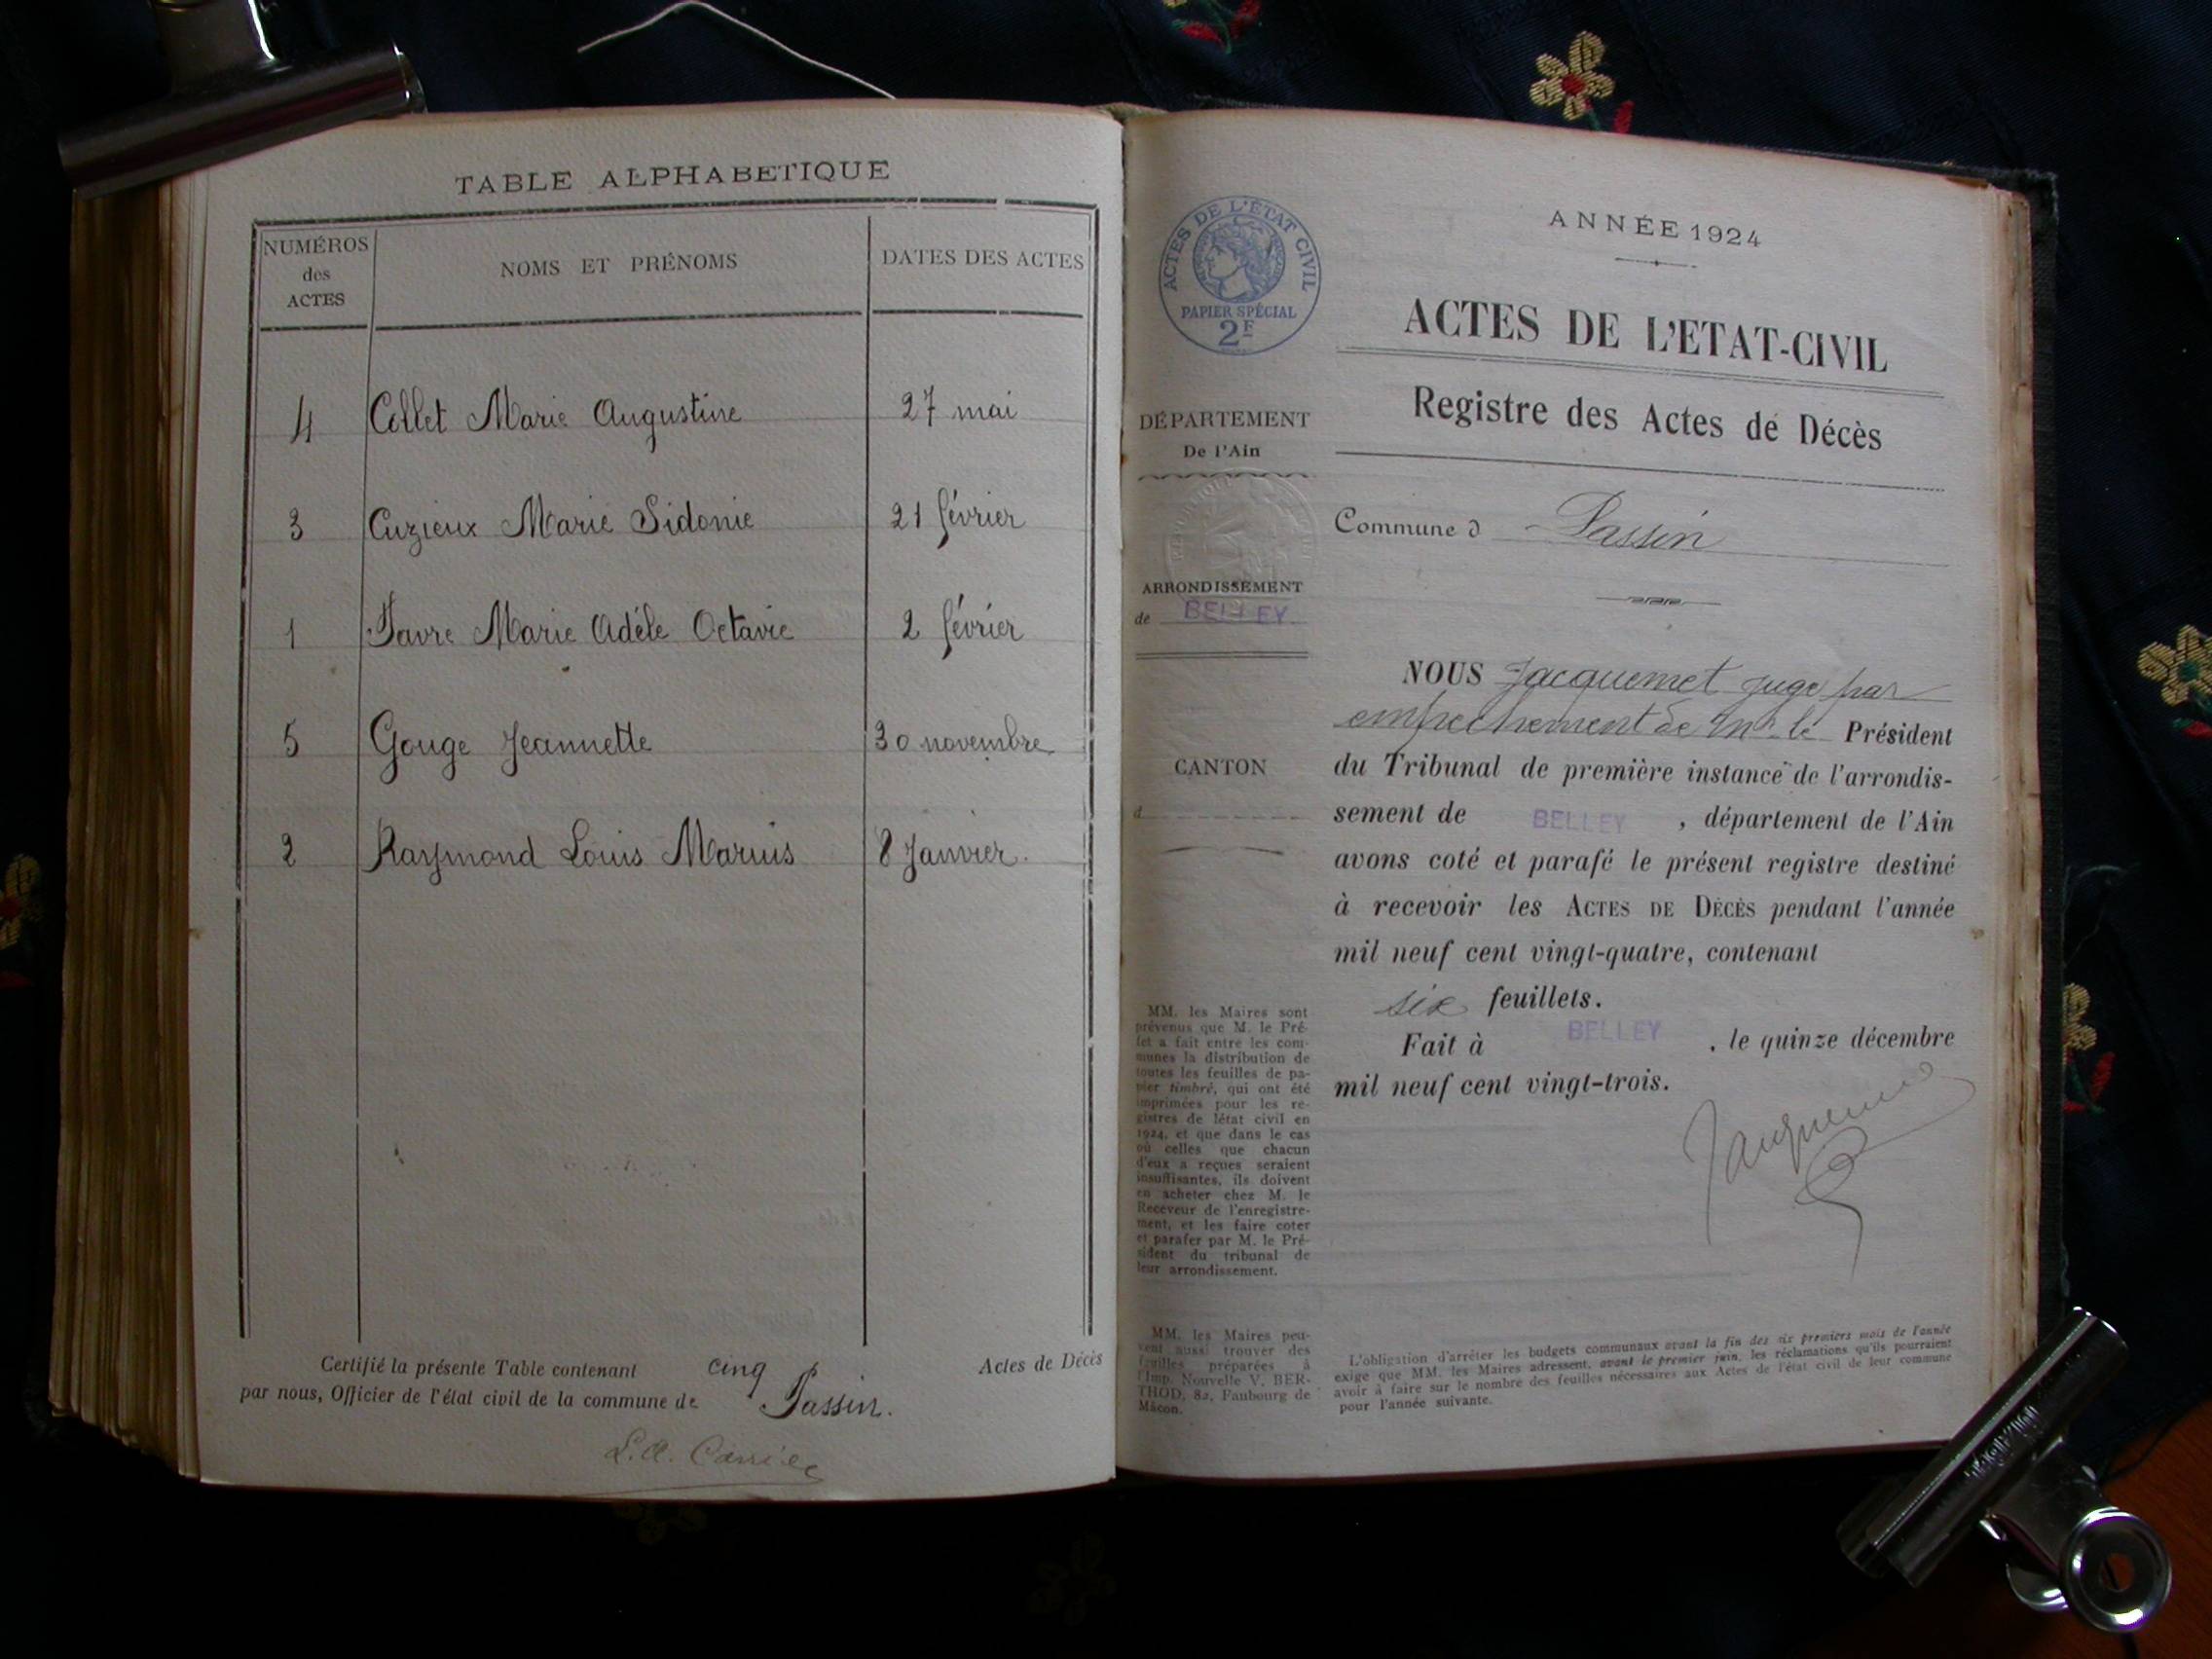 TABLE ALPHABETIQUE
NUMÉROS
des
ACTES
NOMS ET PRÉNOMS
DATES DES ACTES
4 Collet Marie Augustine 27 mai
3 Cuzieux Marie Sidonie 21 février
1 Favre Marie Adéle Octavie 2 février
5 Gouge Jeannette 30 novembre
2 Raymond Louis Marius 8 Janvier.
Certifié la présente Table contenant cinq Actes de Décès
par nous, Officier de l'état civil de la commune de Passin.
L. A. Carrier
ACTES DE L'ÉTAT CIVIL
PAPIER SPÉCIAL
2F
DÉPARTEMENT
De l'Ain
ARRONDISSEMENT
de BELLEY
CANTON
d
MM. les Maires sont
prévenus que M. le Pré-
fet a fait entre les com-
munes la distribution de
toutes les feuilles de pa-
pier timbré, qui ont été
imprimées pour les re-
gistres de létat civil en
1924, et que dans le cas
où celles que chacun
d'eux a reçues seraient
insuffisantes, ils doivent
en acheter chez M. le
Receveur de l'enregistre-
ment, et les faire coter
et parafer par M. le Pré-
sident du tribunal de
leur arrondissement.
MM. les Maires peu-
vent aussi trouver des
feuilles préparées à
l'Imp. Nouvelle V. BER-
THOD, 82, Faubourg de
Mâcon.
ANNÉE 1924
ACTES DE L'ETAT-CIVIL
Registre des Actes de Décès
Commune d Passin
NOUS Jacquemet juge par
empechement de Mr. le Président
du Tribunal de première instance de l'arrondis-
sement de BELLEY, département de l'Ain
avons coté et parafé le présent registre destiné
à recevoir les ACTES DE DÉCÈS pendant l'année
mil neuf cent vingt-quatre, contenant
six feuillets.
Fait à BELLEY, le quinze décembre
mil neuf cent vingt-trois.
Jacquemet
L'obligation d'arrêter les budgets communaux avant la fin des six premiers mois de l'année
exige que MM. les Maires adressent, avant le premier juin, les réclamations qu'ils pourraient
avoir à faire sur le nombre des feuilles nécessaires aux Actes de l'état civil de leur commune
pour l'année suivante.